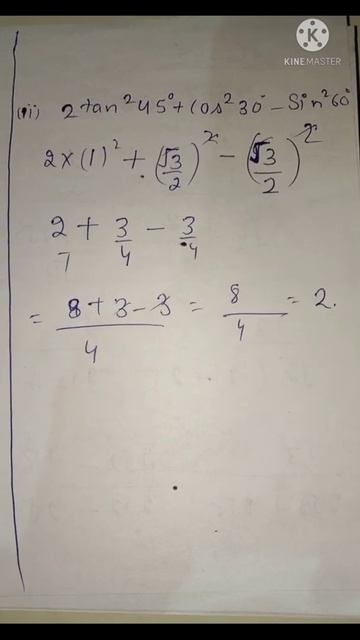 KINEMASTER
(ii) 2 tan²45° + Cos²30° - Sin²60°
2 × (1)² + (√3/2)² - (√3/2)²
2/1 + 3/4 - 3/4
= 8 + 3 - 3 / 4 = 8/4 = 2.